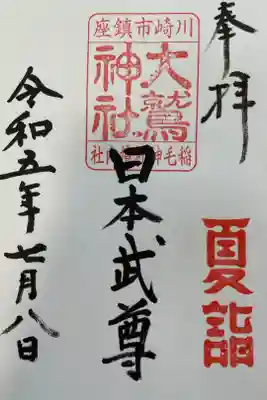 奉拝
夏詣
川崎市鎮座
大鷲神社
稲毛神社境内社
日本武尊
令和五年七月八日